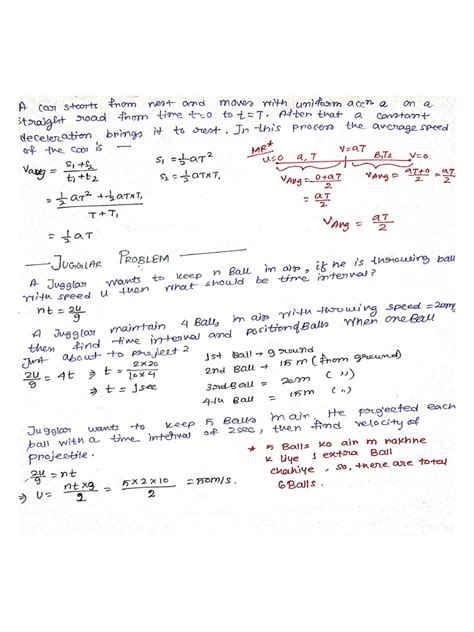 A car starts from rest and moves with uniform accn a on a
straight road from time t=0 to t=T. After that a constant
deceleration brings it to rest. In this process the average speed
of the car is —
Vavg = (S1+S2)/(t1+t2)
S1 = ½aT²
S2 = ½aT×T1
= (½aT² + ½aT×T1)/(T+T1)
= ½aT
MR*
u=0 a,T V=aT B,T2 V=0
VAvg = (0+aT)/2
= aT/2
VAvg = (aT+0)/2 = aT/2
VAvg = aT/2
JUGGLAR PROBLEM
A Jugglar wants to keep n Ball in air, if he is throwing ball
with speed u then what should be time interval?
nt = 2u/g
A Jugglar maintain 4 Balls in air with throwing speed = 20m/s
then find time interval and position of Balls when one Ball
Just about to project?
2u/g = 4t ⇒ t = (2×20)/(10×4)
⇒ t = 1sec
1st Ball → ground
2nd Ball → 15m (from ground)
3rd Ball = 20m (,,)
4th Ball = 15m (,,)
Jugglar wants to keep 5 Balls in air. He projected each
ball with a time interval of 2sec, then find velocity of
projectile.
2u/g = nt
⇒ u = (nt×g)/2 = (5×2×10)/2 = 50m/s.
* 5 Balls ko air m rakhne
k liye 1 extra Ball
chahiye, so, there are total
6 Balls.